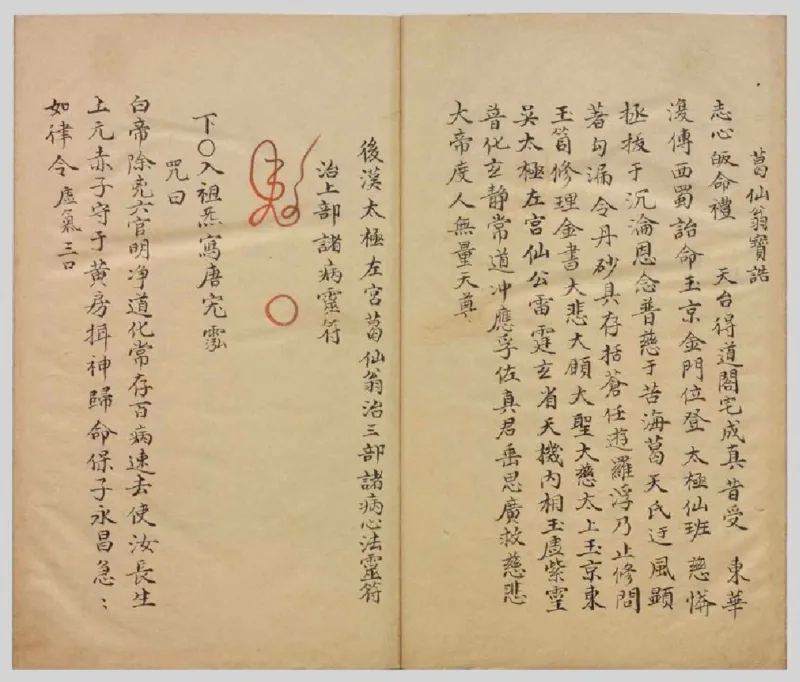 葛仙翁寶誥
志心皈命禮 天台得道閤宅成真昔受 東華
復傳西蜀詔命玉京金門位登 太極仙班 慈憐
拯拔于沉淪恩念普慈于苦海葛天氏迓風顯
著勾漏令丹砂具存括蒼任遊羅浮乃止修問
玉笥修理金書大悲大願大聖大慈太上玉京東
吳太極左宮仙公雷霆玄省天機內相玉虛紫靈
普化玄靜常道冲應孚佑真君垂恩廣救慈悲
大帝度人無量天尊
後漢太極左宮葛仙翁治三部諸病心法靈符
治上部諸病靈符
下〇入祖炁寫唐宄
咒曰
白帝除兇六官明净道化常存百病速去使汝長生
上元赤子守于黃房揖神歸命保子永昌急〻
如律令 虛氣三口